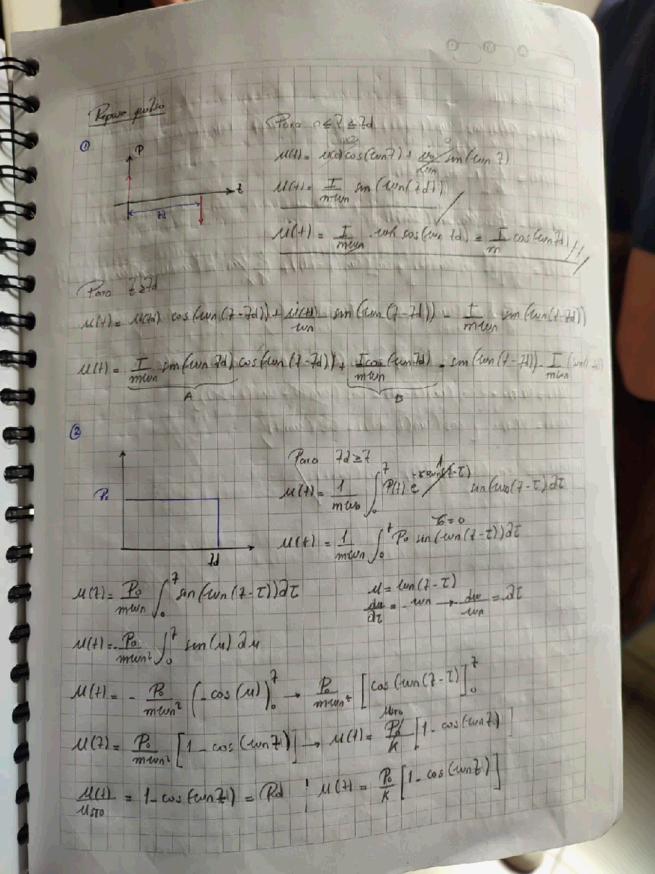 Repaso pulso
①
P
t
td
Para 0 ≤ t ≥ td
u(t) = u(0) cos(ωn t) + u̇0/ωn sin(ωn t)
u(t) = I/mωn sin(ωn(td))
u̇(t) = I/mωn ωn cos(ωn td) = I/m cos(ωn td)
Para t ≥ td
u(t) = u(td) cos(ωn(t-td)) + u̇(td)/ωn sin(ωn(t-td)) - I/mωn sin(ωn(t-td))
u(t) = I/mωn sin(ωn td) cos(ωn(t-td)) + I cos(ωn td)/mωn · sin(ωn(t-td)) - I/mωn
A
B
②
P0
td
Para td ≥ t
u(t) = 1/mωD ∫₀ᵗ P(τ) e sin(ωD(t-τ)) ∂τ
ζ=0
u(t) = 1/mωn ∫₀ᵗ P0 sin(ωn(t-τ)) ∂τ
u(t) = P0/mωn ∫₀ᵗ sin(ωn(t-τ)) ∂τ
u = ωn(t-τ)
du/∂τ = -ωn → du/ωn = ∂τ
u(t) = - P0/mωn² ∫₀ᵗ sin(u) ∂u
u(t) = - P0/mωn² (-cos(u))₀ᵗ → P0/mωn² [cos(ωn(t-τ)]₀ᵗ
u(t) = P0/mωn² [1 - cos(ωn t)] → u(t) = P0/k [1 - cos(ωn t)]
usto
u(t)/usto = 1 - cos(ωn t) = Rd
u(t) = P0/k [1 - cos(ωn t)]